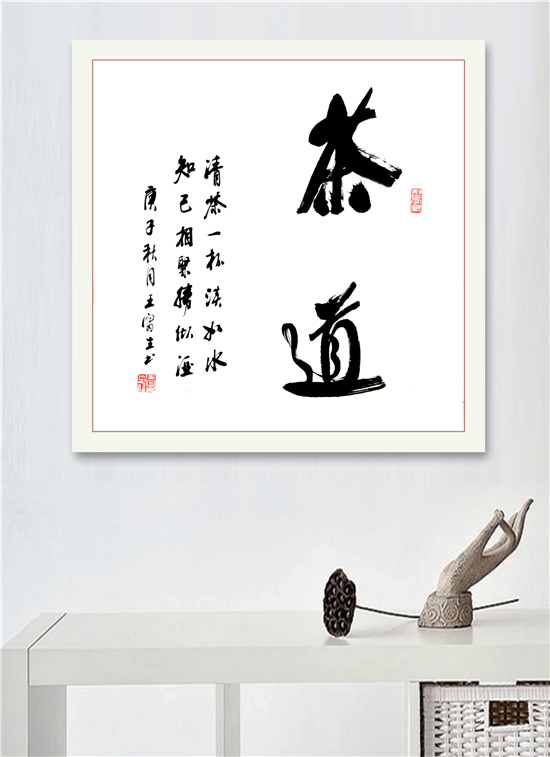 茶道
清茶一杯淡如水
知己相聚勝似酒
庚子秋月王富书